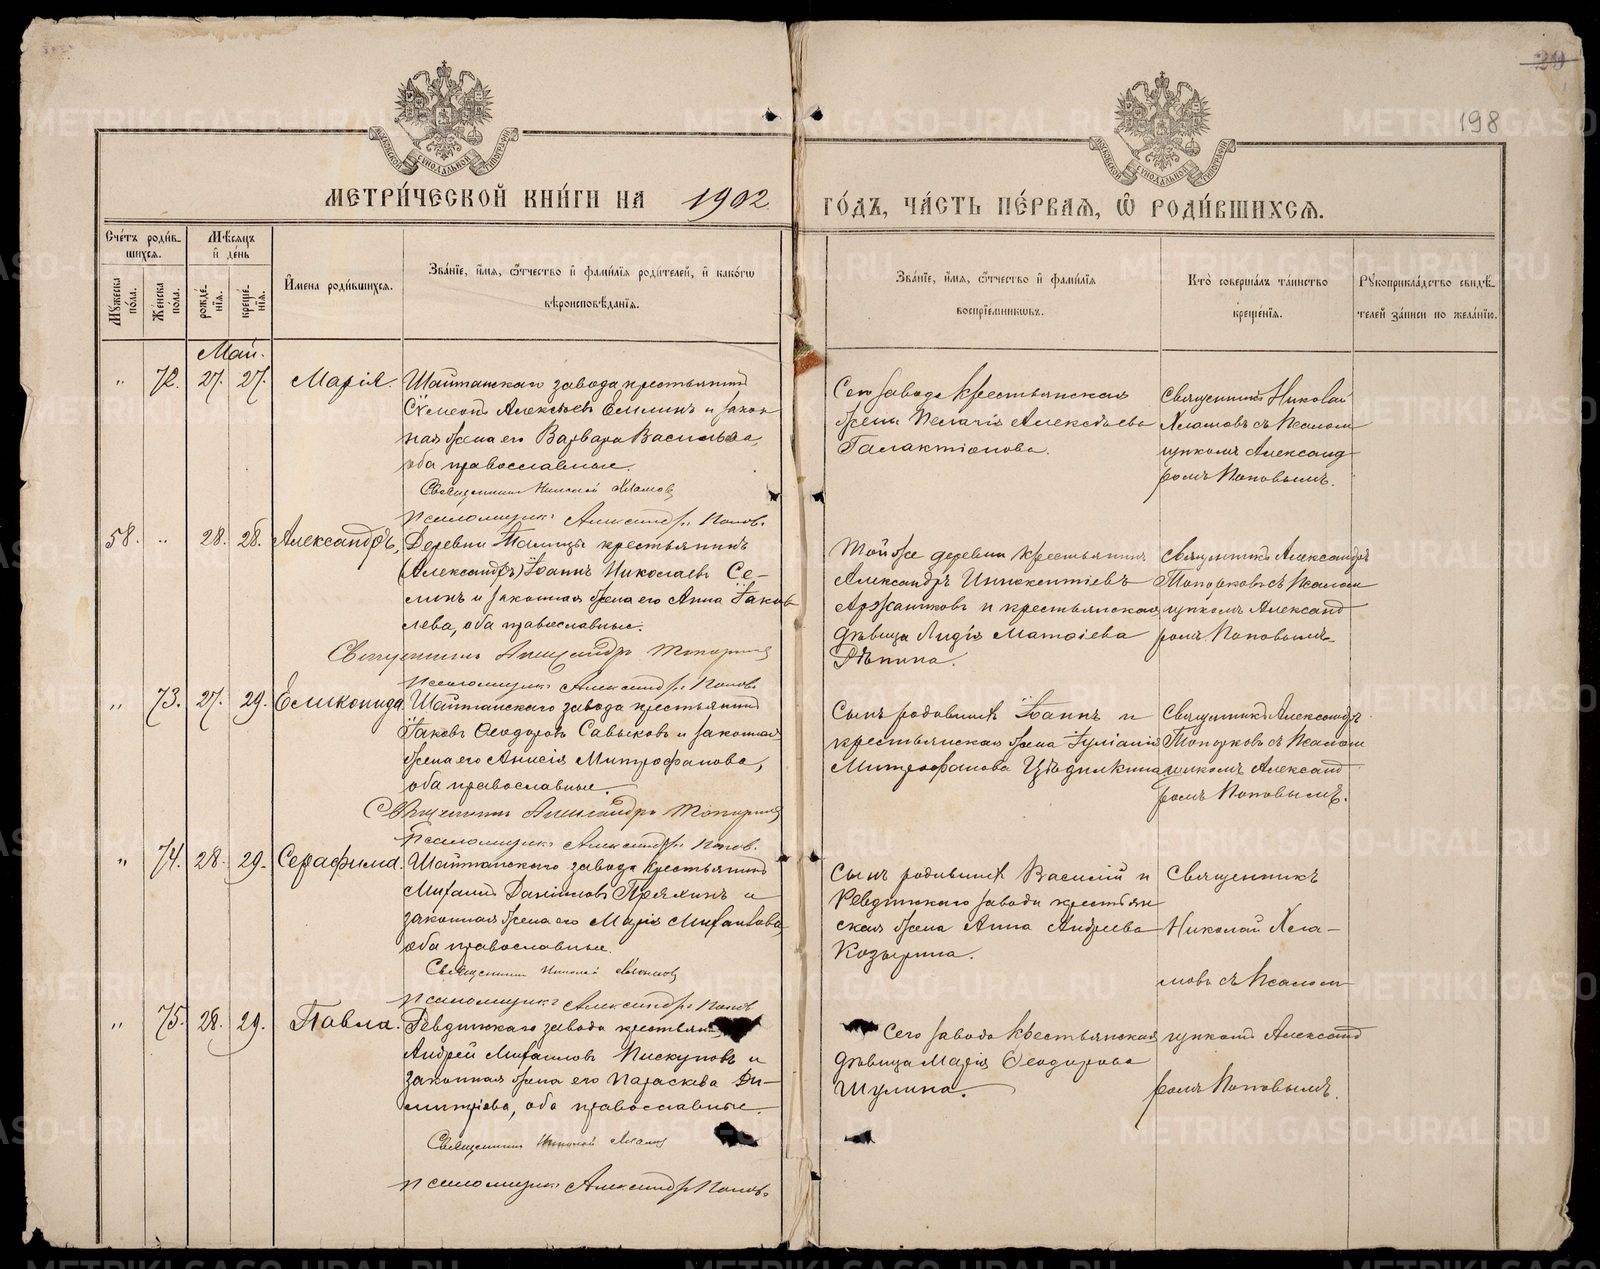 29
198
МОСКОВСКОЙ СѴНОДАЛЬНОЙ ТИПОГРАФІИ
МОСКОВСКОЙ СѴНОДАЛЬНОЙ ТИПОГРАФІИ
МЕТРИ́ЧЕСКОЙ КНИ́ГИ НА 1902 ГО́ДЪ, ЧА́СТЬ ПЕ́РВАѦ, Ѽ РОДИ́ВШИХСѦ.
Сче́тъ роди́в-
шихся.
Мѣ́сяцъ
и҆ де́нь
Мꙋ́жеска
по́ла.
Же́нска
по́ла.
рожде́-
нїя.
креще́-
нїя.
И҆́мена роди́вшихся.
Зва́нїе, и҆́мя, ѻ҆́тчество и҆ фами́лїя роди́телей, и҆ како́гѡ
вѣроисповѣ́данїя.
Зва́нїе, и҆́мя, ѻ҆́тчество и҆ фами́лїя
воспрїе́мникѡвъ.
Кто̀ соверша́лъ та́инство
креще́нїя.
Рꙋкоприкла́дство свидѣ́-
телей за́писи по жела́нїю.
Май.
„ 72. 27. 27. Марія.
Шайтанскаго завода крестьянинъ
Сѵмеонъ Алексѣевъ Емлинъ и закон
ная жена его Варвара Васильева,
оба православные.
Священникъ Николай Хламовъ
Псаломщикъ Александръ Поповъ.
Сего завода крестьянская
жена Пелагія Алексѣева
Галактіонова.
Священникъ Николай
Хламовъ съ Псалом
щикомъ Александ
ромъ Поповымъ.
58. „ 28. 28. Александръ,
Деревни Талицы крестьянинъ
(Александръ) Іоаннъ Николаевъ Се-
минъ и законная жена его Анна Іаков
лева, оба православные.
Священникъ Александръ Топорковъ
Псаломщикъ Александръ Поповъ.
Той же деревни крестьянинъ
Александръ Иннокентіевъ
Аржанниковъ и крестьянская
дѣвица Лидія Матѳіева
Рѣпина.
Священникъ Александръ
Топорковъ съ Псалом
щикомъ Александ
ромъ Поповымъ
„ 73. 27. 29. Еликонида.
Шайтанскаго завода крестьянинъ
Іаковъ Ѳеодоровъ Савыковъ и законная
жена его Анисія Митрофанова,
оба православные.
Священникъ Александръ Топорковъ
Псаломщикъ Александръ Поповъ.
Сынъ родившихъ Іоаннъ и
крестьянская жена Іуліанія
Митрофанова Цѣдилкина
Священникъ Александръ
Топорковъ съ Псалом
щикомъ Александ
ромъ Поповымъ.
„ 74. 28. 29. Серафима.
Шайтанскаго завода крестьянинъ
Михаилъ Даніиловъ Пряхинъ и
законная жена его Марія Михаилова,
оба православные.
Священникъ Николай Хламовъ
Псаломщикъ Александръ Поповъ
Сынъ родившихъ Василій и
Ревдинскаго завода крестьян
ская жена Анна Андреева
Козырина.
Священникъ
Николай Хла-
мовъ съ Псалом
„ 75. 28. 29. Павла.
Ревдинскаго завода крестьян
Андрей Михаиловъ Пискуновъ и
законная жена его Параскева Ди-
митріева, оба православные.
Священникъ Николай Хламовъ
Псаломщикъ Александръ Поповъ.
Сего завода крестьянская
дѣвица Марія Ѳеодорова
Шулина.
щикомъ Александ
ромъ Поповымъ.
METRIKI.GASO-URAL.RU